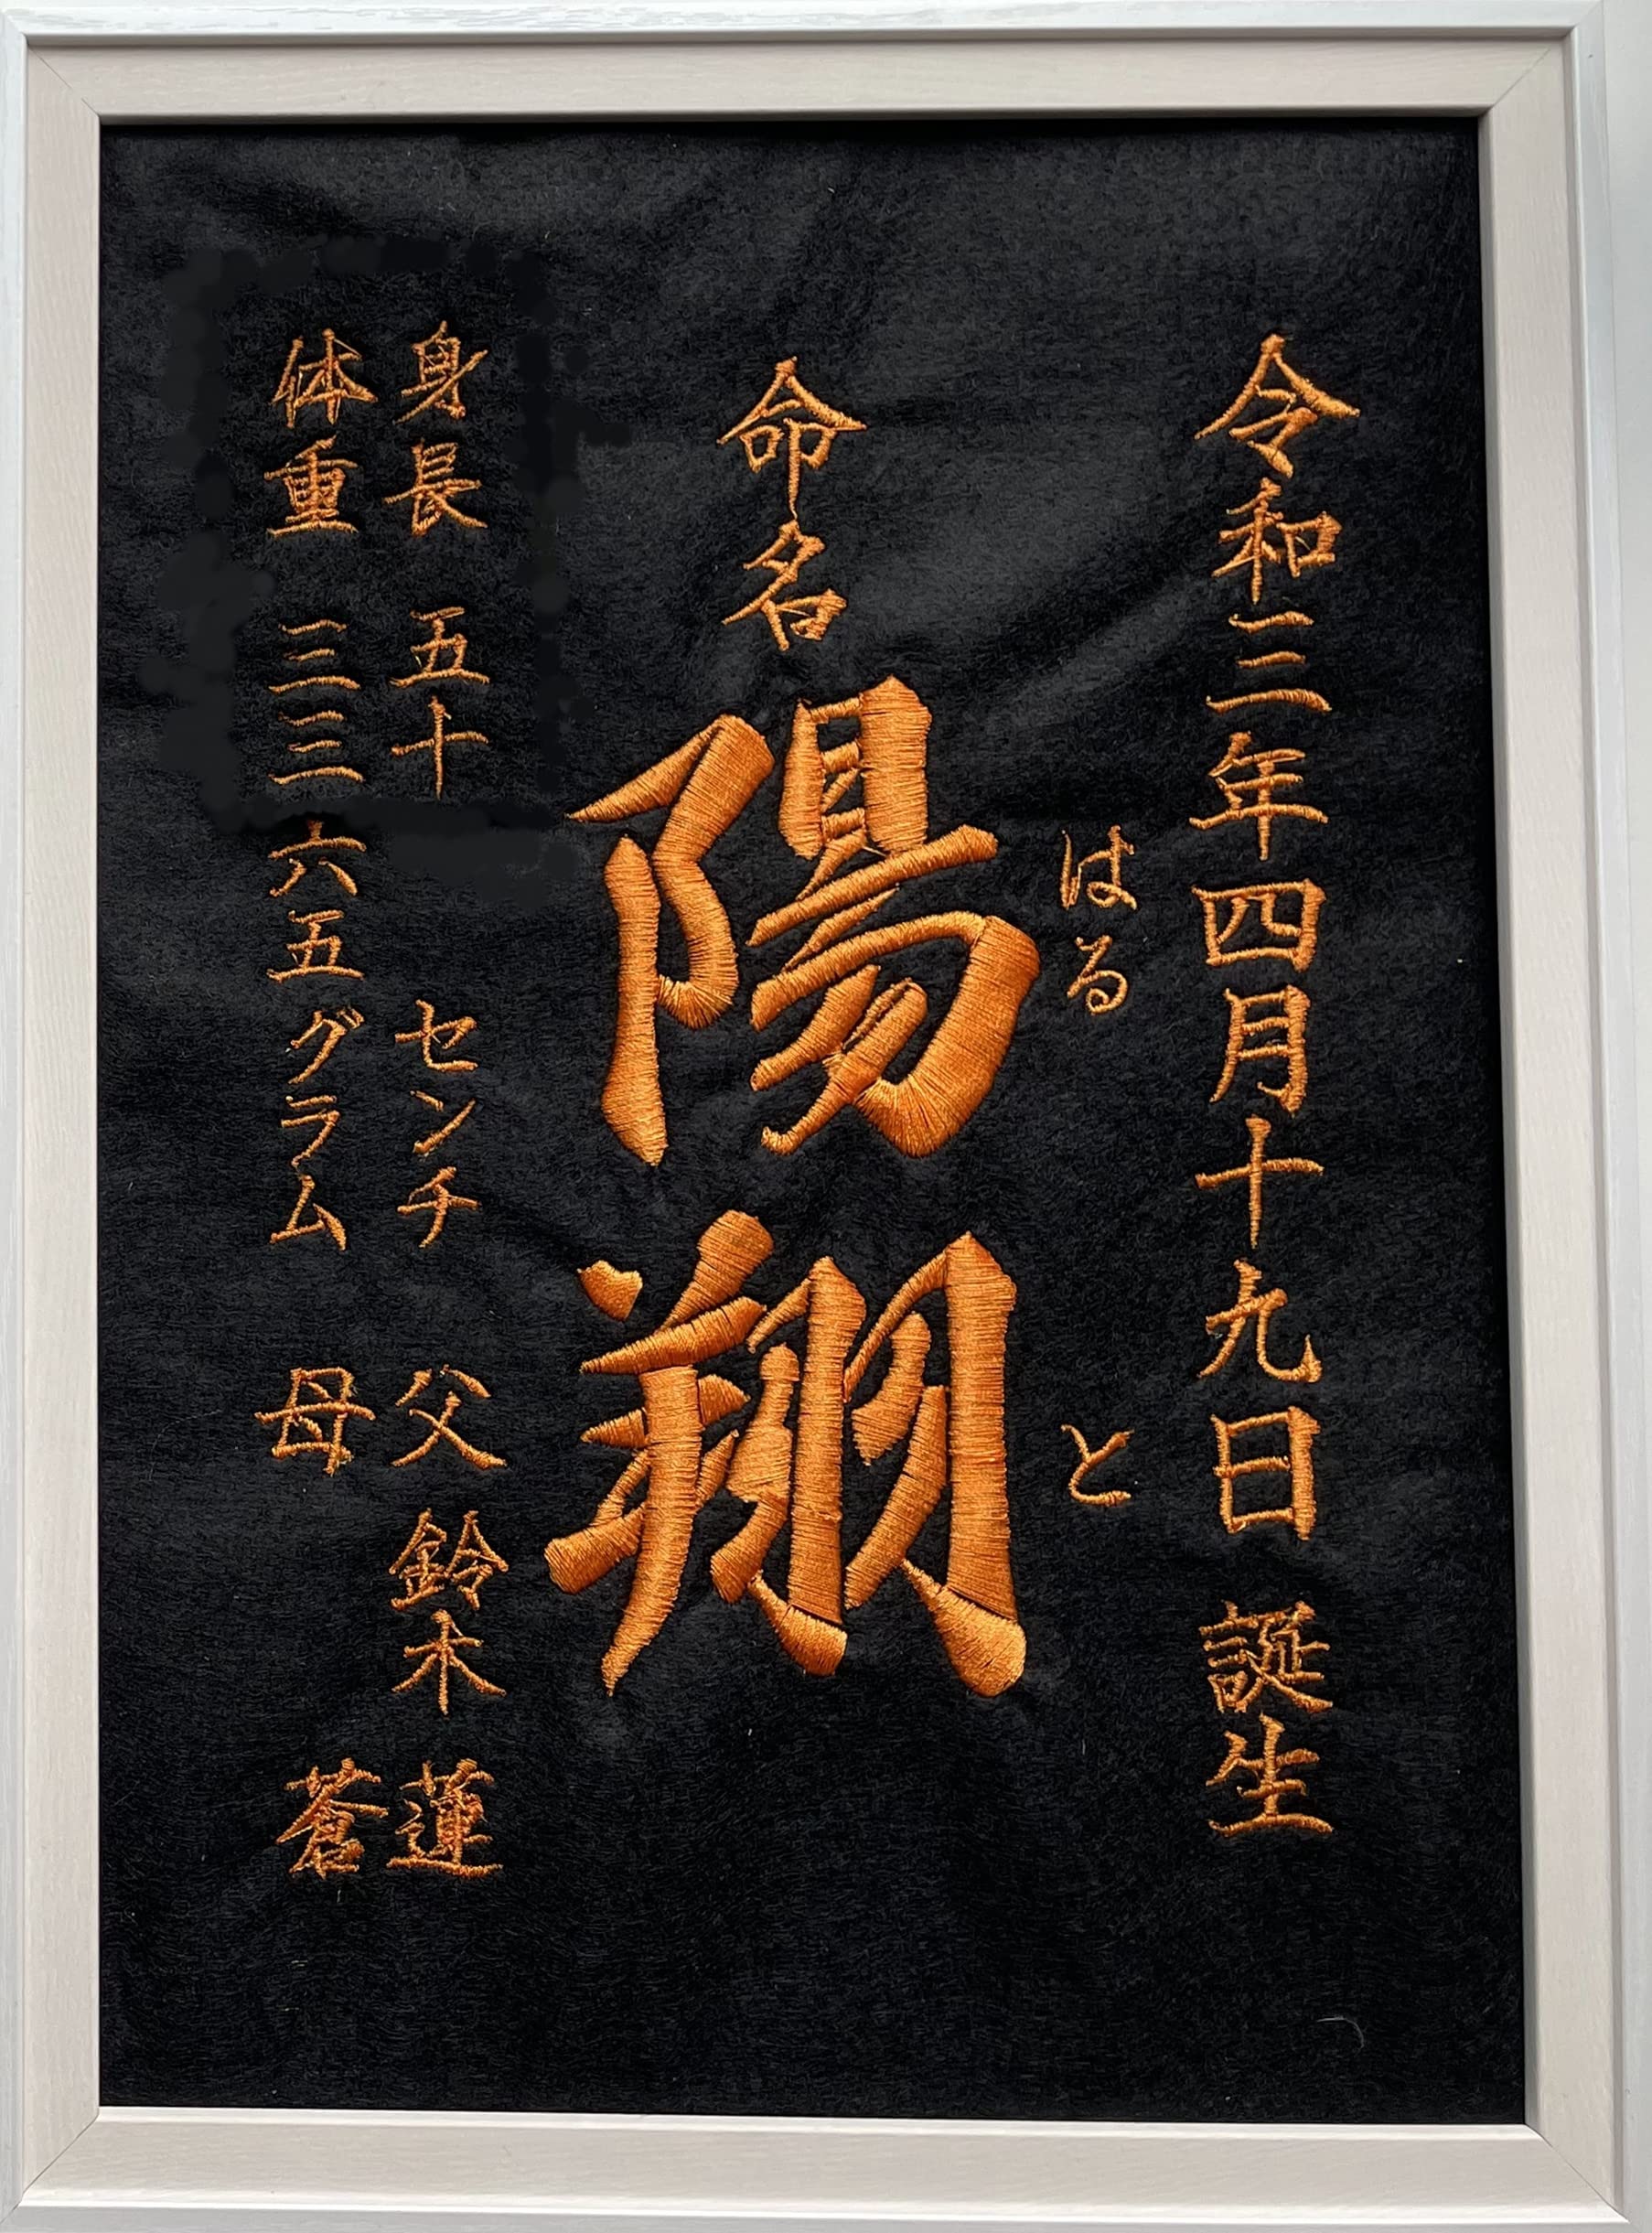 令和三年四月十九日 誕生
はる と
命名 陽翔
身長 五十 センチ 父 鈴木 蓮
体重 三三六五グラム 母 蒼